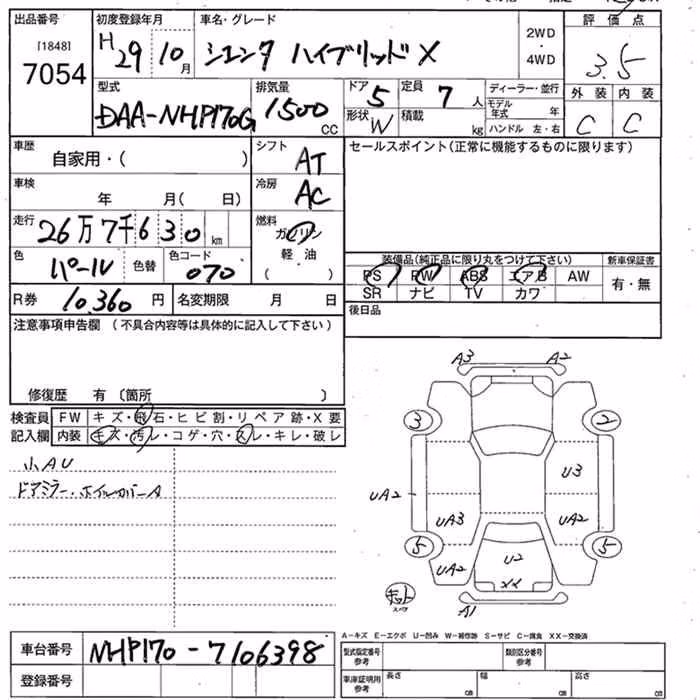 出品番号
[1848]
7054
初度登録年月
H29 10月
車名・グレード
シエンタ ハイブリッド X
2WD
・
4WD
評価点
3.5
外装 内装
C C
型式
DAA-NHP170G
排気量
1500 CC
ドア 5
形状 W
定員 7 人
積載 kg
ディーラー・並行
モデル年式 年
ハンドル 左・右
車歴
自家用・( )
シフト
AT
セールスポイント(正常に機能するものに限ります)
車検
年 月( 日)
冷房
AC
走行
26万7千630 km
燃料
ガソリン
軽油
( )
色
パール
色替
色コード
070
装備品(純正品に限り丸をつけて下さい)
PS PW ABS エアB AW
SR ナビ TV カワ
新車保証書
有・無
R券 10,360 円
名変期限 月 日
後日品
注意事項申告欄 (不具合内容等は具体的に記入して下さい)
修復歴 有 〔箇所 〕
検査員記入欄
FW キズ・飛石・ヒビ割・リペア跡・X要
内装 キズ・汚レ・コゲ・穴・スレ・キレ・破レ
小AU
ドアミラー・ホイルカバーA
A3 A2
3 2
U3
UA2
UA3 UA2
5 5
UA2 U2
XX
キット
A1
A-キズ E-エクボ U-凹み W-補修跡 S-サビ C-腐食 XX-交換済
車台番号 NHP170-7106398
登録番号
型式指定番号 参考
類別区分番号 参考
車庫証明用 参考
長さ cm
幅 cm
高さ cm